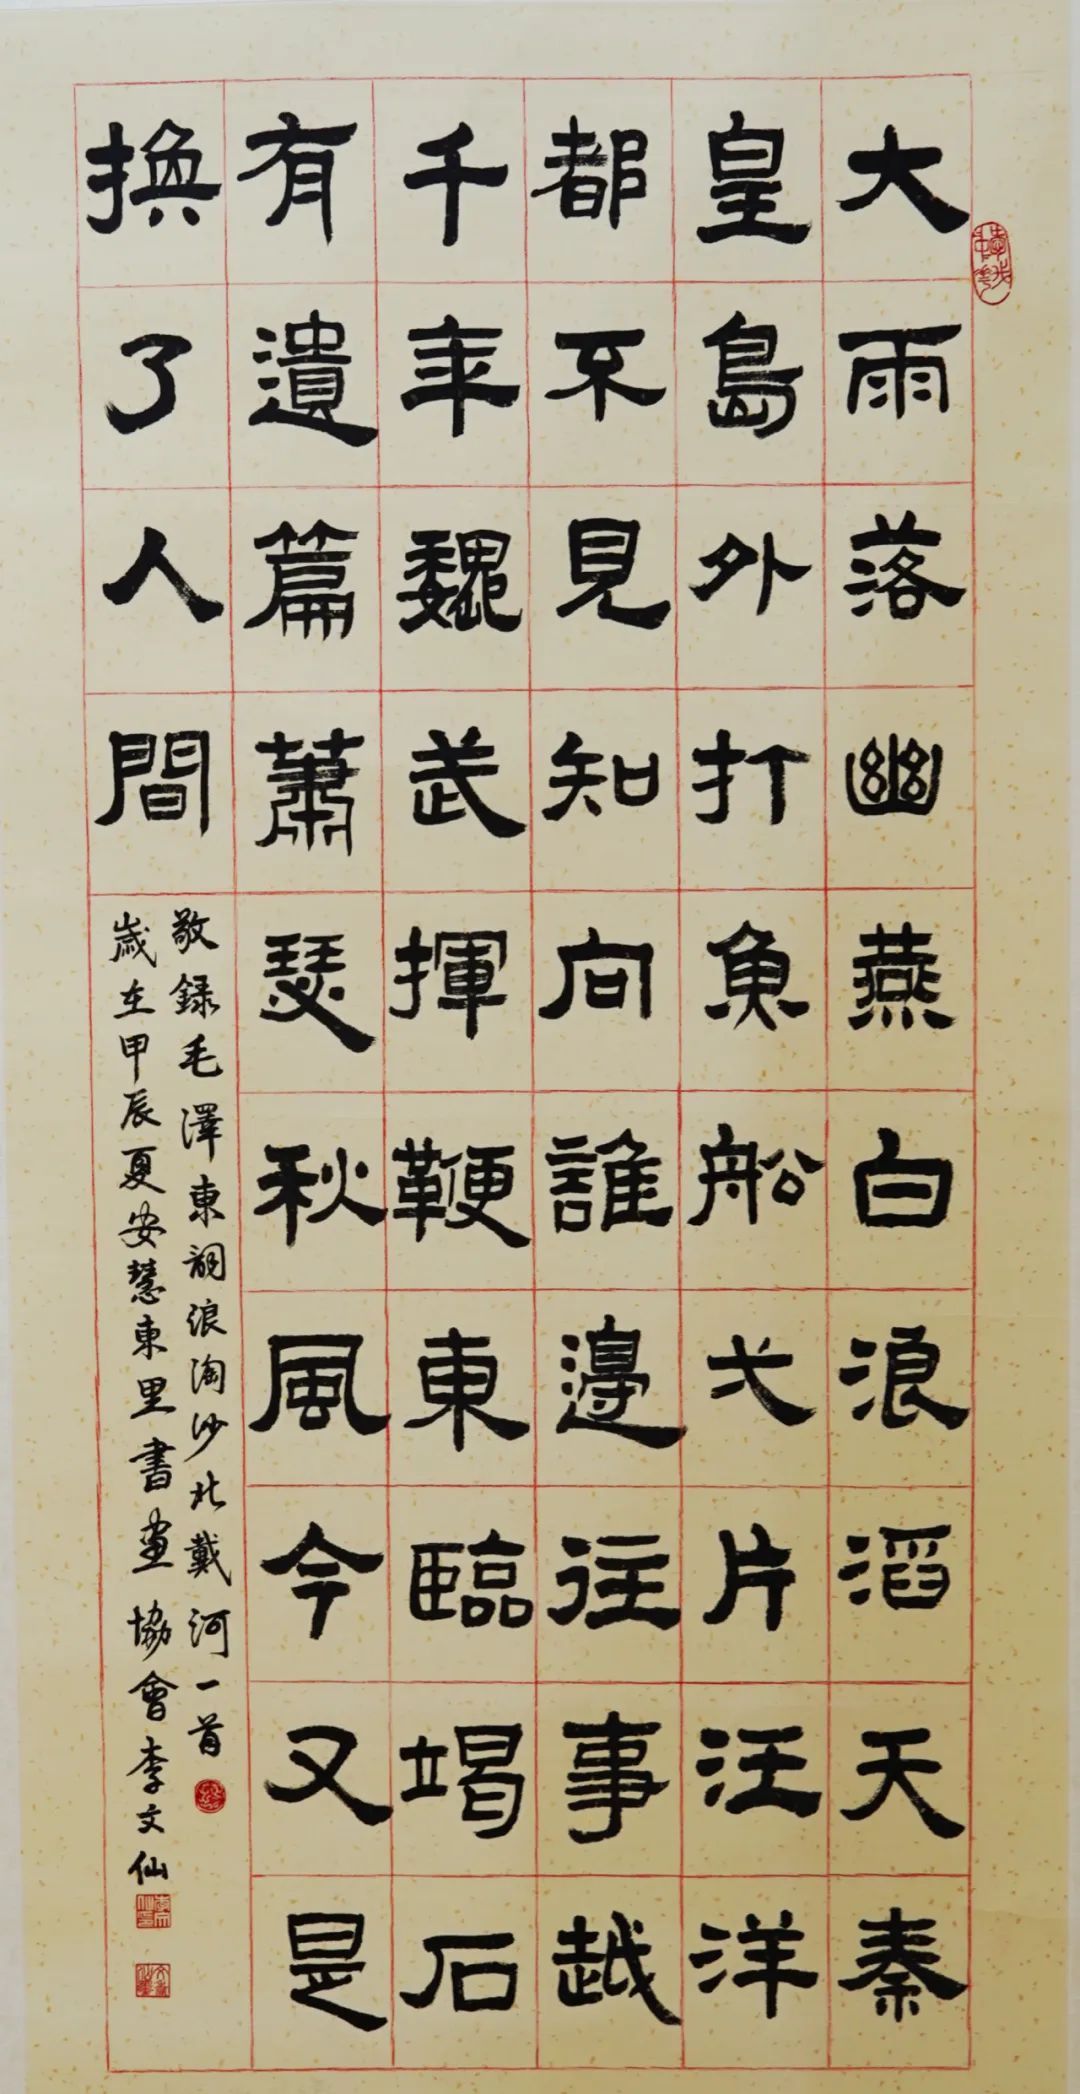 大雨落幽燕白浪滔天秦
皇島外打魚船弋片汪洋
都不見知向誰邊往事越
千年魏武揮鞭東臨竭石
有遺篇蕭瑟秋風今又是
換了人間
敬録毛澤東詞浪淘沙北戴河一首
歲在甲辰夏安慧東里書畫協會李文仙